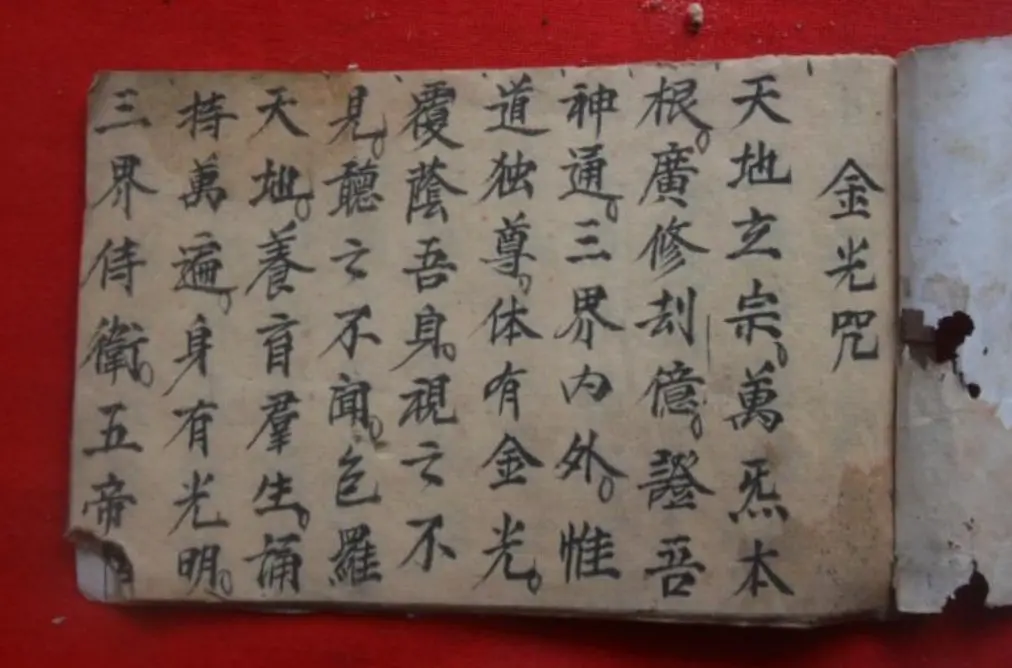 金光咒
天地玄宗。萬炁本
根。廣修刦億。證吾
神通。三界内外。惟
道独尊。体有金光。
覆蔭吾身。視之不
見。聽之不聞。包羅
天地。養育羣生。誦
持萬遍。身有光明。
三界侍衛。五帝